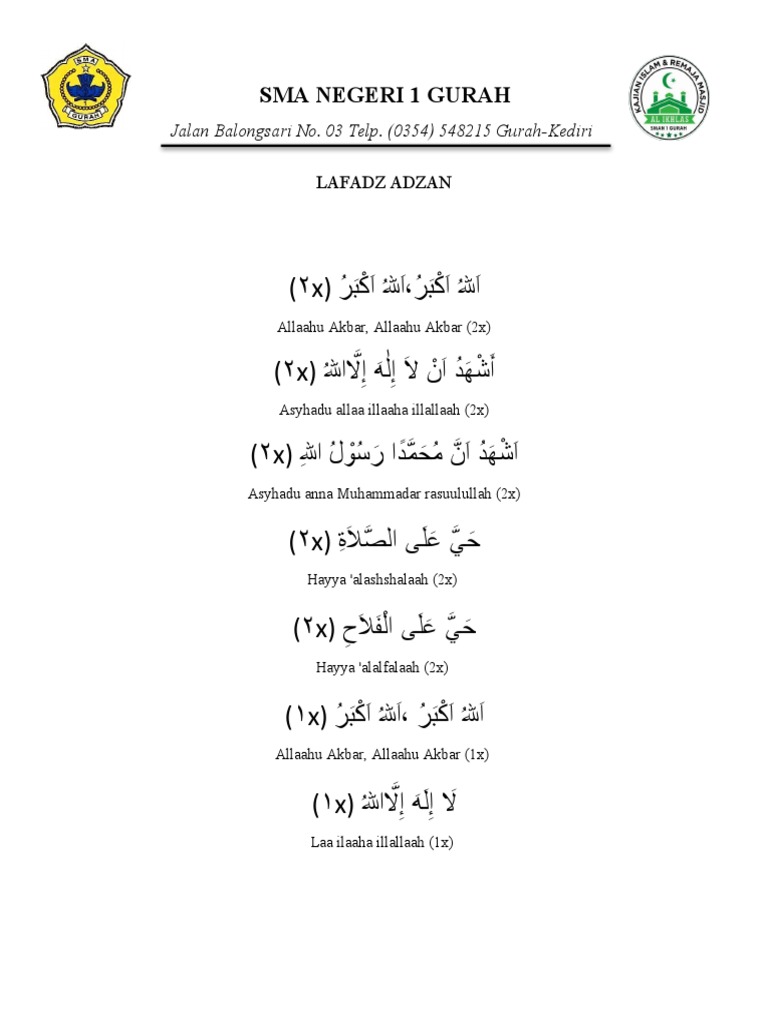 SMA
GURAH
SMA NEGERI 1 GURAH
Jalan Balongsari No. 03 Telp. (0354) 548215 Gurah-Kediri
KAJIAN ISLAM & REMAJA MASJID
AL IKHLAS
SMAN 1 GURAH
LAFADZ ADZAN
اَللهُ اَكْبَرُ،اَللهُ اَكْبَرُ (٢x)
Allaahu Akbar, Allaahu Akbar (2x)
أَشْهَدُ اَنْ لاَ إِلٰهَ إِلَّااللهُ (٢x)
Asyhadu allaa illaaha illallaah (2x)
اَشْهَدُ اَنَّ مُحَمَّدًا رَسُوْلُ اللهِ (٢x)
Asyhadu anna Muhammadar rasuulullah (2x)
حَيَّ عَلَى الصَّلاَةِ (٢x)
Hayya 'alashshalaah (2x)
حَيَّ عَلَى الْفَلاَحِ (٢x)
Hayya 'alalfalaah (2x)
اَللهُ اَكْبَرُ ،اَللهُ اَكْبَرُ (١x)
Allaahu Akbar, Allaahu Akbar (1x)
لَا إِلَهَ إِلَّااللهُ (١x)
Laa ilaaha illallaah (1x)